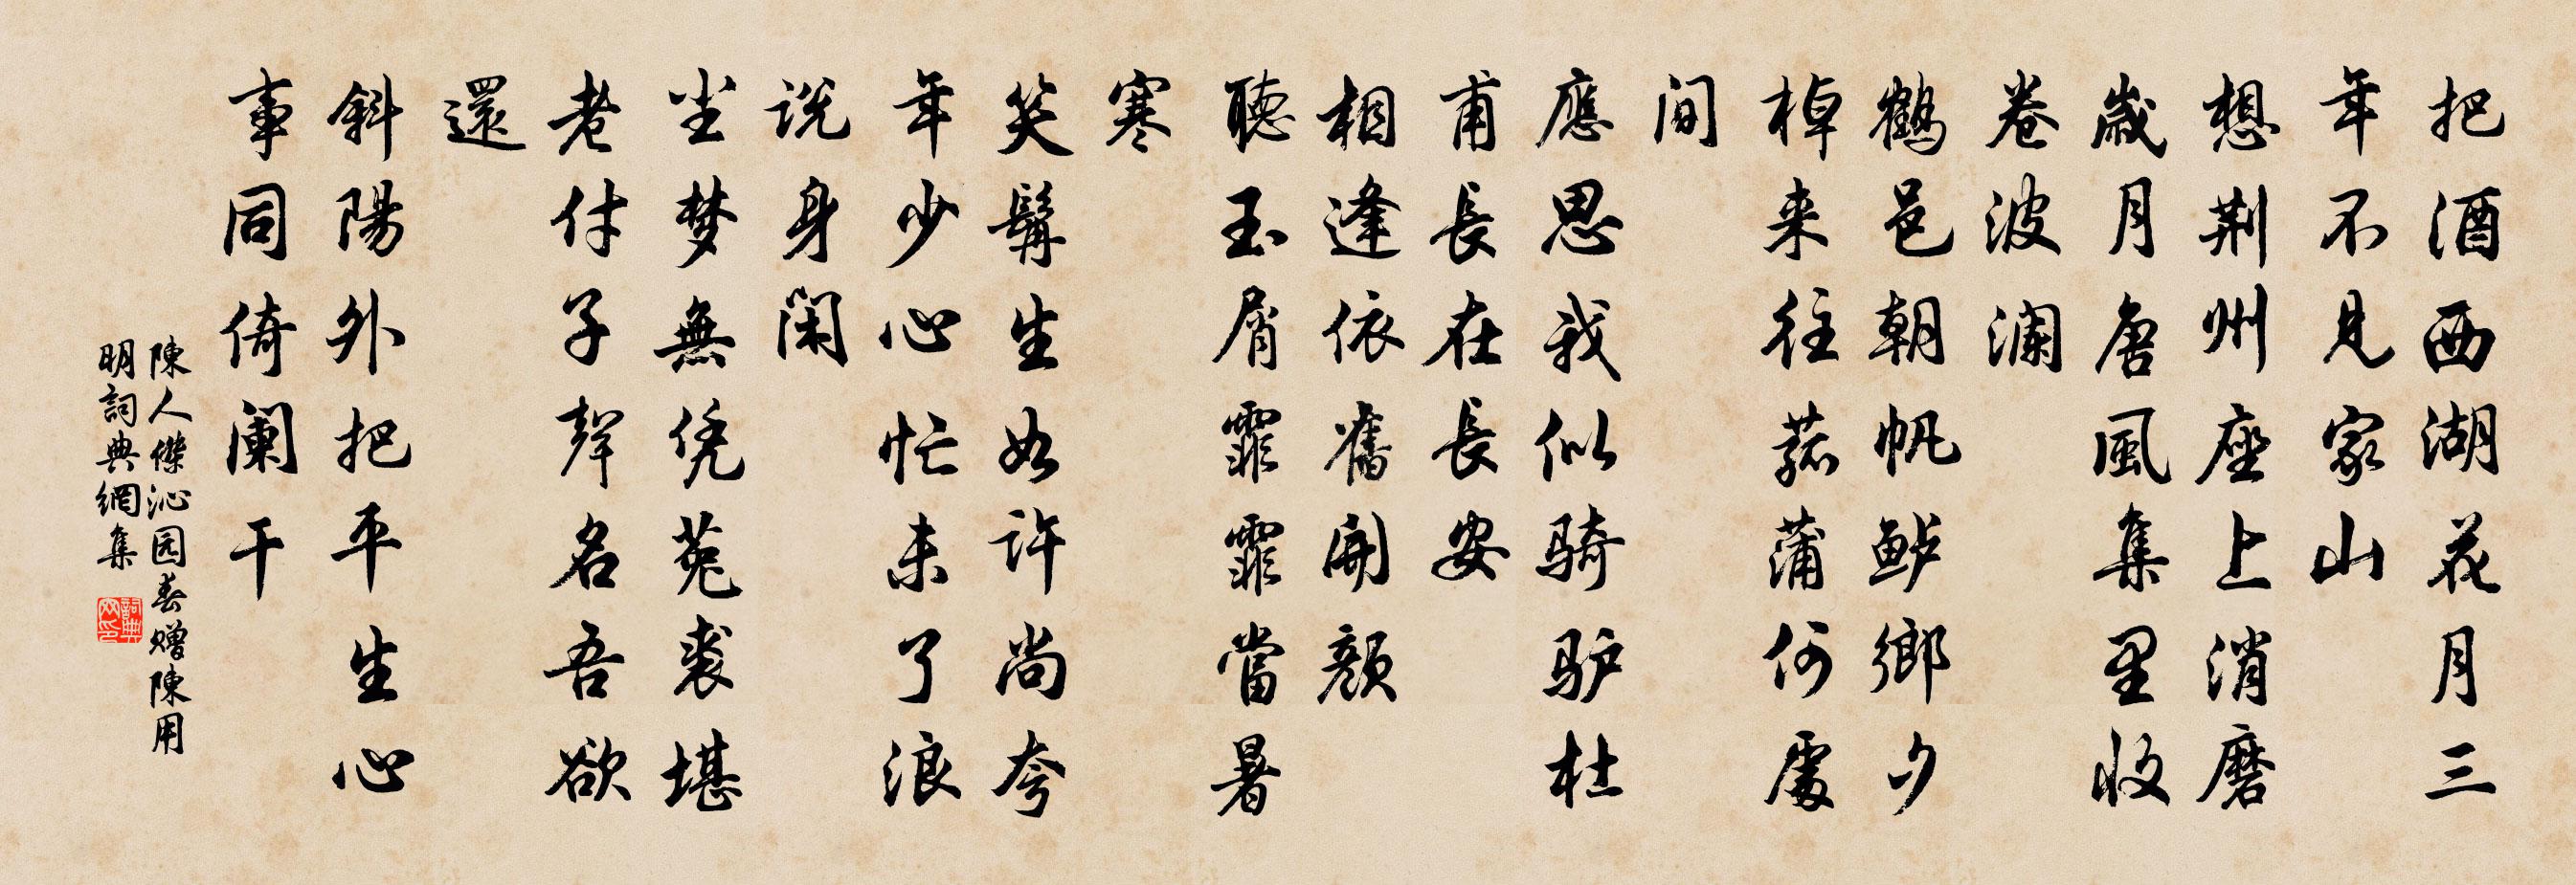 把酒西湖花月三
年不見家山
想荆州座上消磨
歲月唐風集里收
卷波澜
鶴邑朝帆鲈鄉夕
棹来往菰蒲何處
间
應思我似骑驴杜
甫長在長安
相逢依舊開顔
聽玉屑霏霏當暑
寒
笑鬢生如许尚夸
年少心忙未了浪
说身闲
坐梦無凭菟裘堪
老付子聲名吾欲
還
斜陽外把平生心
事同倚阑干
陳人傑沁园春赠陳用
明詞典網集
詞典
网印